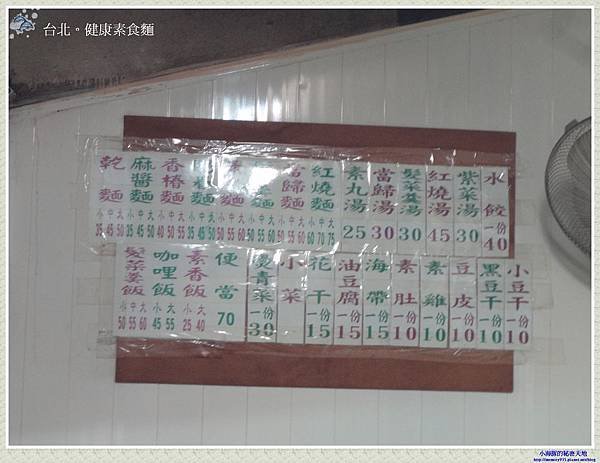 台北。健康素食麵
水餃 一份 40
紫菜湯 30
紅燒湯 45
髮菜羹湯 30
當歸湯 30
素丸湯 25
紅燒麵 小中大 60 70 75
當歸麵 小中大 50 55 60
麵 小中大 50 55 60
麵 小中大 50 55 60
麵 小中大 35 45 50
香椿麵 小中大 40 50 55
麻醬麵 小中大 35 45 50
乾麵 小中大 35 45 50
小豆干 一份 10
黑豆干 一份 10
豆皮 一份 10
素雞 一份 10
素肚 一份 10
海帶 一份 15
油豆腐 一份 15
花干 一份 15
小菜
燙青菜 一份 30
便當 70
素香飯 小大 25 40
咖哩飯 中大 45 55
髮菜羹飯 小中大 50 55 60
小海豚的秘密天地